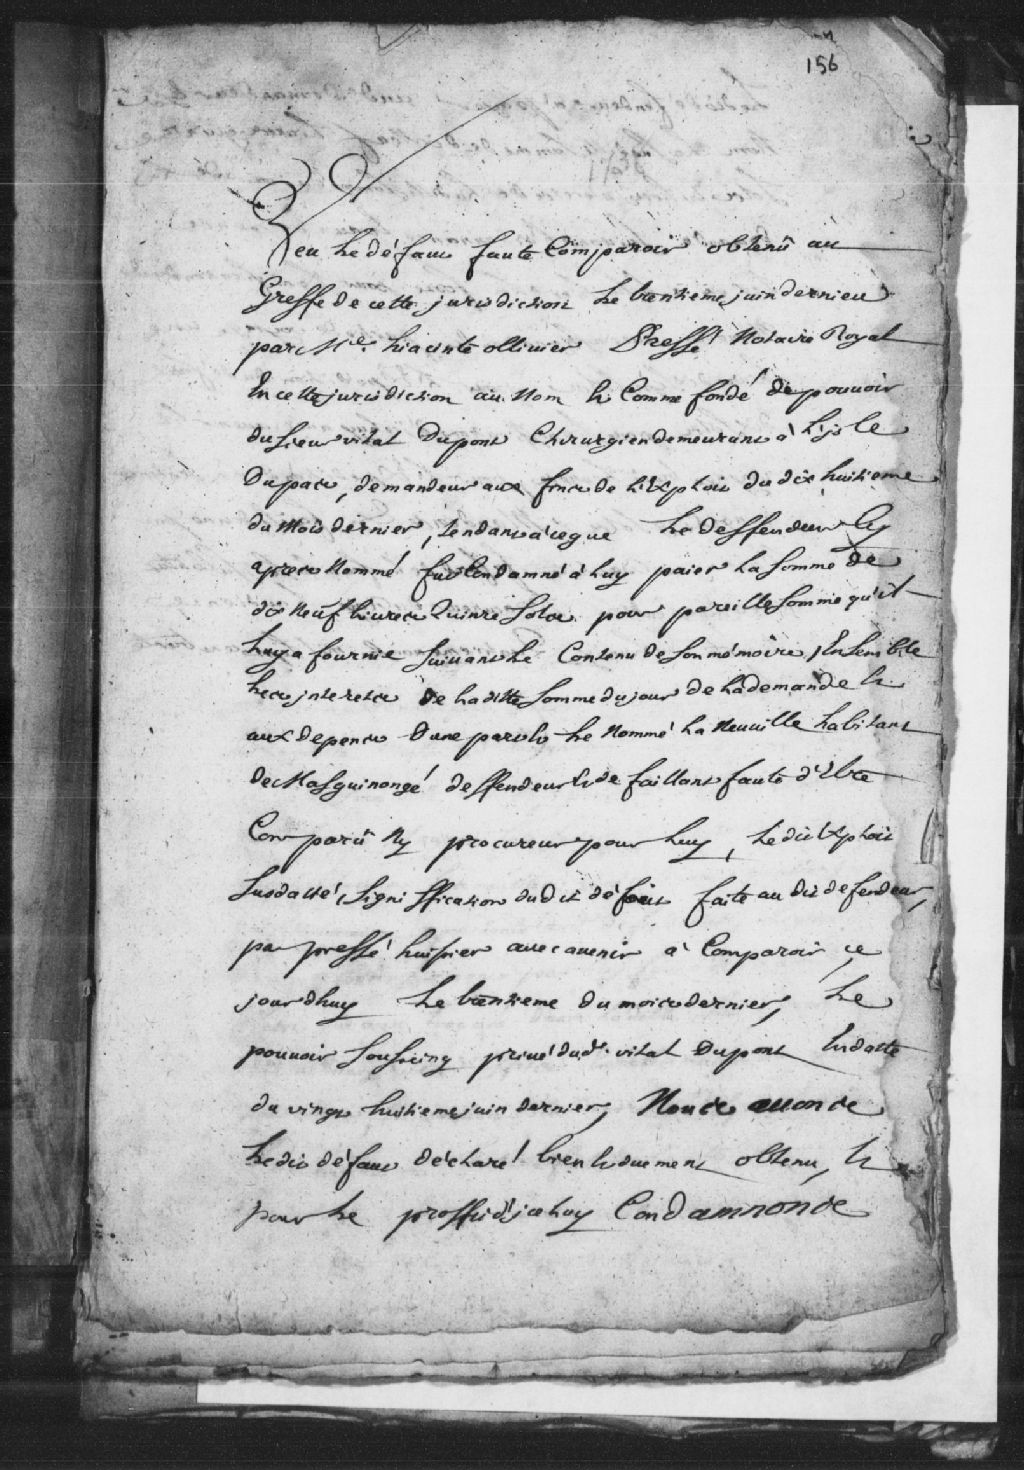 156
Veu Le défaut faute Comparoir obtenû au
Greffe de cette jurisdiction Le trentieme juin dernier
par Me. hiacinte ollivier Pressé Notaire Royal
En cette jurisdiction au Nom Et Comme fondé de pouvoir
du Sieur vital Dupont Chirurgien demeurant à L'isle
Dupas, demandeur aux fins de L'Exploit du dix huitieme
du Mois dernier, tendant à ce que Le deffendeur Cy
apres Nommé fut Condamné à Luy paier La Somme de
dix Neuf Livres Quinze Sols pour pareille Somme qu'il
Luy a fournie Suivant Le Contenu de Son mémoire, Ensemble
Les interests de Laditte Somme du jour de La demande Et
aux depens D'une part Et Le Nommé La Neuville habitant
de Masquinongé deffendeur Et defaillant faute d'Etre
Comparû Ny procureur pour Luy, Ledit Exploit
Susdatté, Signiffication dudit défaut faite audit defendeur,
par pressé huissier avec avenir à Comparoir ce
jourdhuy Le trentieme du mois dernier, Le
pouvoir Sousseing privé dud. vital Dupont En datte
du vingt huitieme juin dernier, Nous avons
Ledit défaut déclaré bien Et duement obtenu, Et
pour Le proffit d'iceluy Condamnons